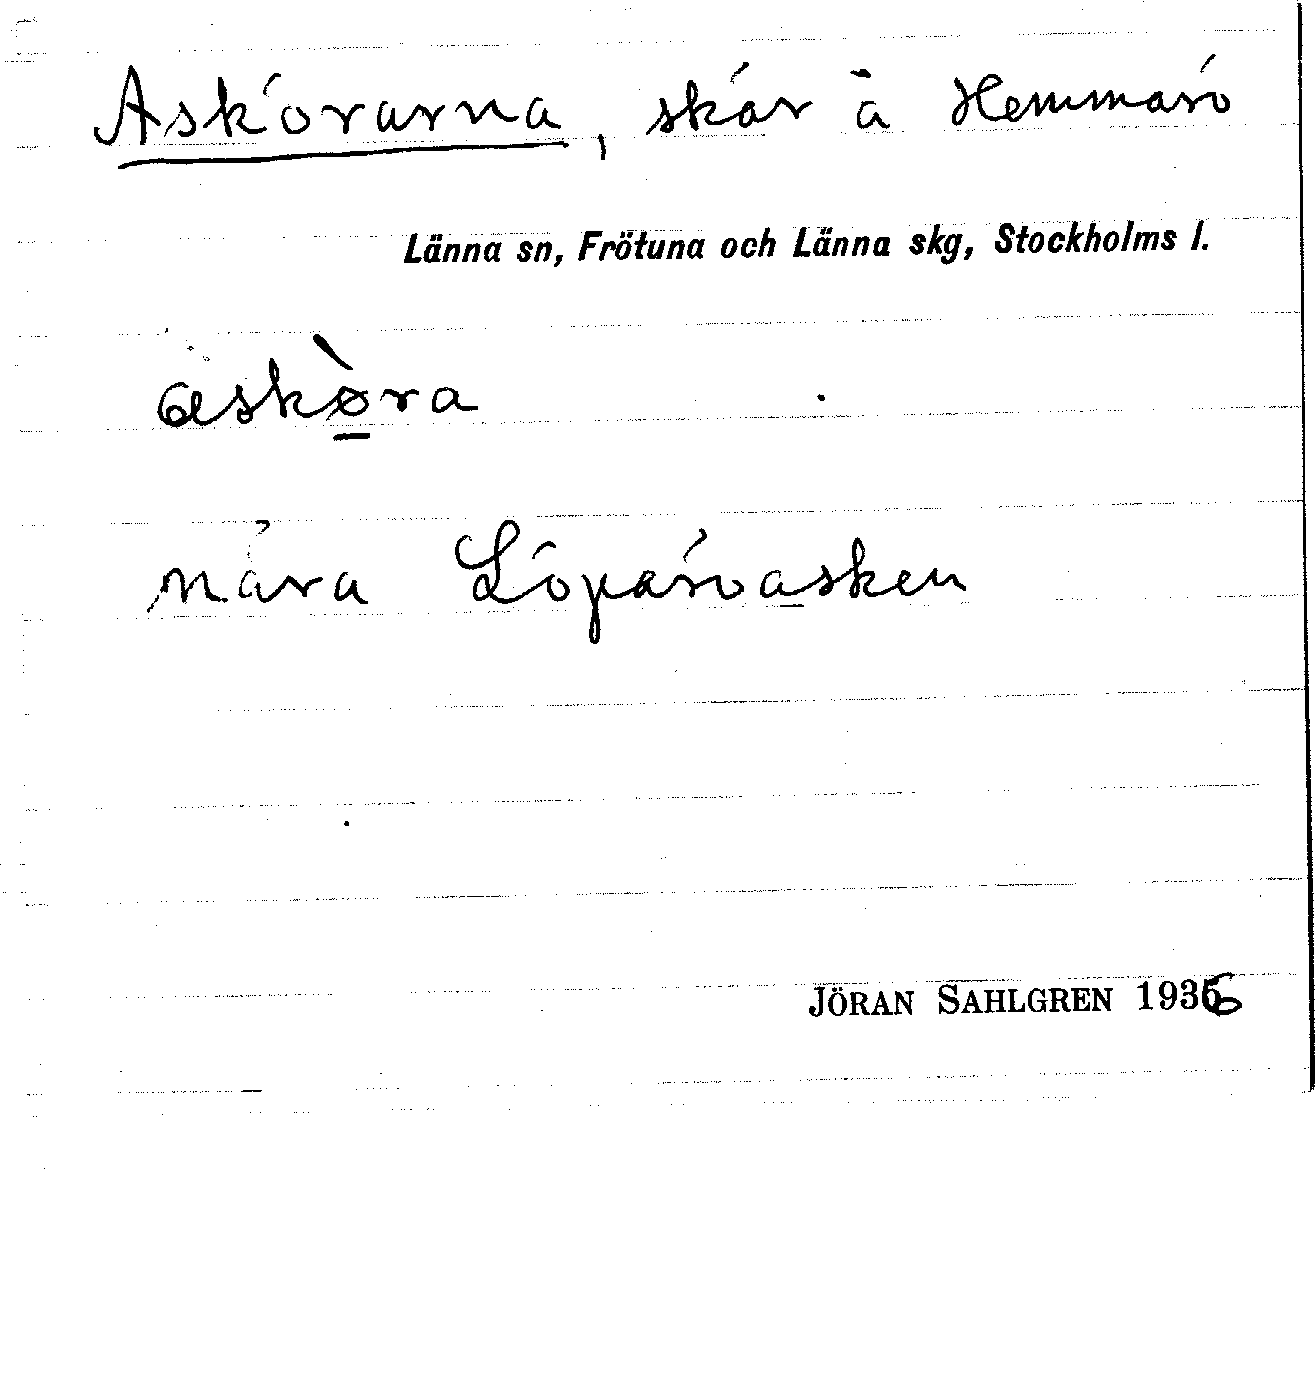 Askörarna, skär å Hemmarö
Länna sn, Frötuna och Länna skg, Stockholms l.
askø̀ra
nära Löparöasken
JÖRAN SAHLGREN 1936